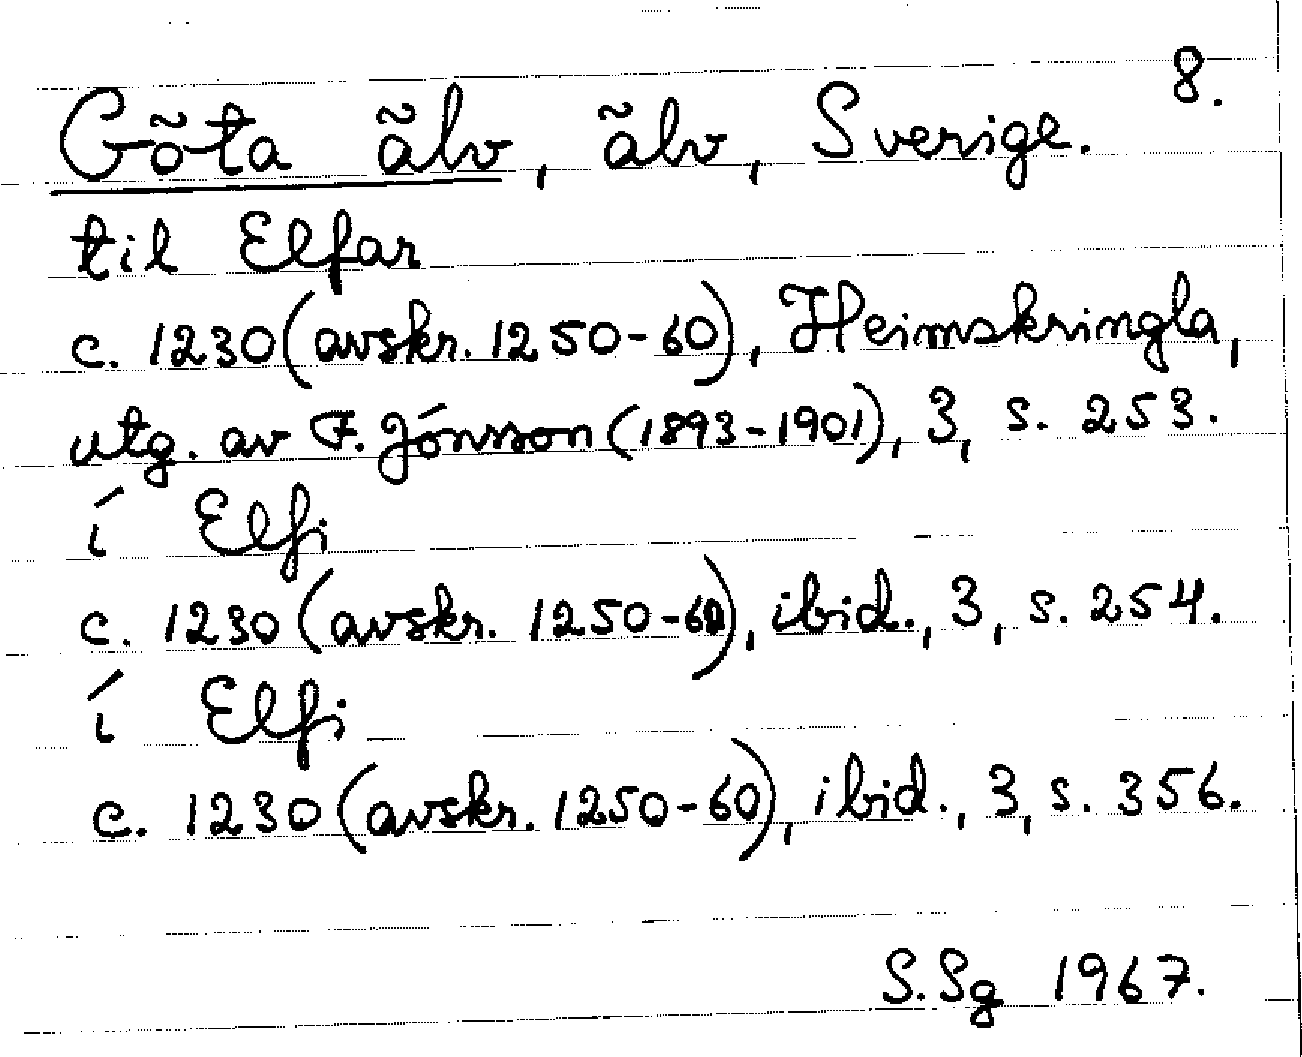 8.
Göta älv, älv, Sverige.
til Elfar
c. 1230 (avskr. 1250-60), Heimskringla,
utg. av F. Jónsson (1893-1901), 3, s. 253.
í Elfi
c. 1230 (avskr. 1250-60), ibid., 3, s. 254.
í Elfi
c. 1230 (avskr. 1250-60), ibid., 3, s. 356.
S. Sg 1967.